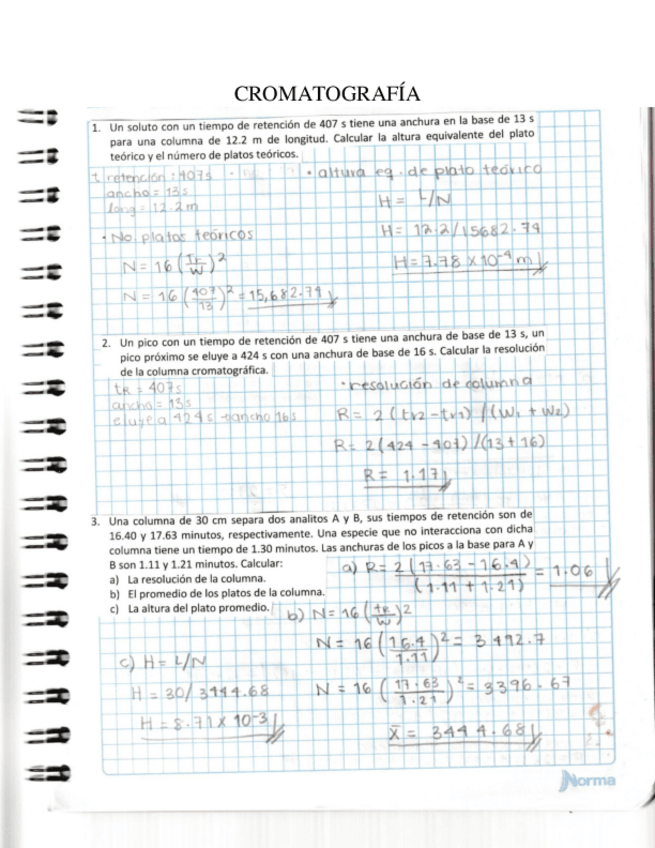 CROMATOGRAFÍA
1. Un soluto con un tiempo de retención de 407 s tiene una anchura en la base de 13 s
para una columna de 12.2 m de longitud. Calcular la altura equivalente del plato
teórico y el número de platos teóricos.
t retención: 407s
ancho = 13s
long = 12.2m
• altura eq. de plato teórico
H = L/N
H = 12.2/15682.79
H = 7.78 x 10⁻⁴ m
• No. platos teóricos
N = 16 (TR/W)²
N = 16 (407/13)² = 15,682.79
2. Un pico con un tiempo de retención de 407 s tiene una anchura de base de 13 s, un
pico próximo se eluye a 424 s con una anchura de base de 16 s. Calcular la resolución
de la columna cromatográfica.
tR = 407s
ancho = 13s
eluye a 424s ancho 16s
• resolución de columna
R = 2(tr2-tr1)/(W1 + W2)
R = 2(424-407)/(13+16)
R = 1.17
3. Una columna de 30 cm separa dos analitos A y B, sus tiempos de retención son de
16.40 y 17.63 minutos, respectivamente. Una especie que no interacciona con dicha
columna tiene un tiempo de 1.30 minutos. Las anchuras de los picos a la base para A y
B son 1.11 y 1.21 minutos. Calcular:
a) La resolución de la columna.
b) El promedio de los platos de la columna.
c) La altura del plato promedio.
a) R = 2(17.63-16.4)/(1.11+1.21) = 1.06
b) N = 16 (tR/W)²
N = 16 (16.4/1.11)² = 3492.7
N = 16 (17.63/1.21)² = 3396.67
x̄ = 3444.68
c) H = L/N
H = 30/3444.68
H = 8.71 x 10⁻³
Norma